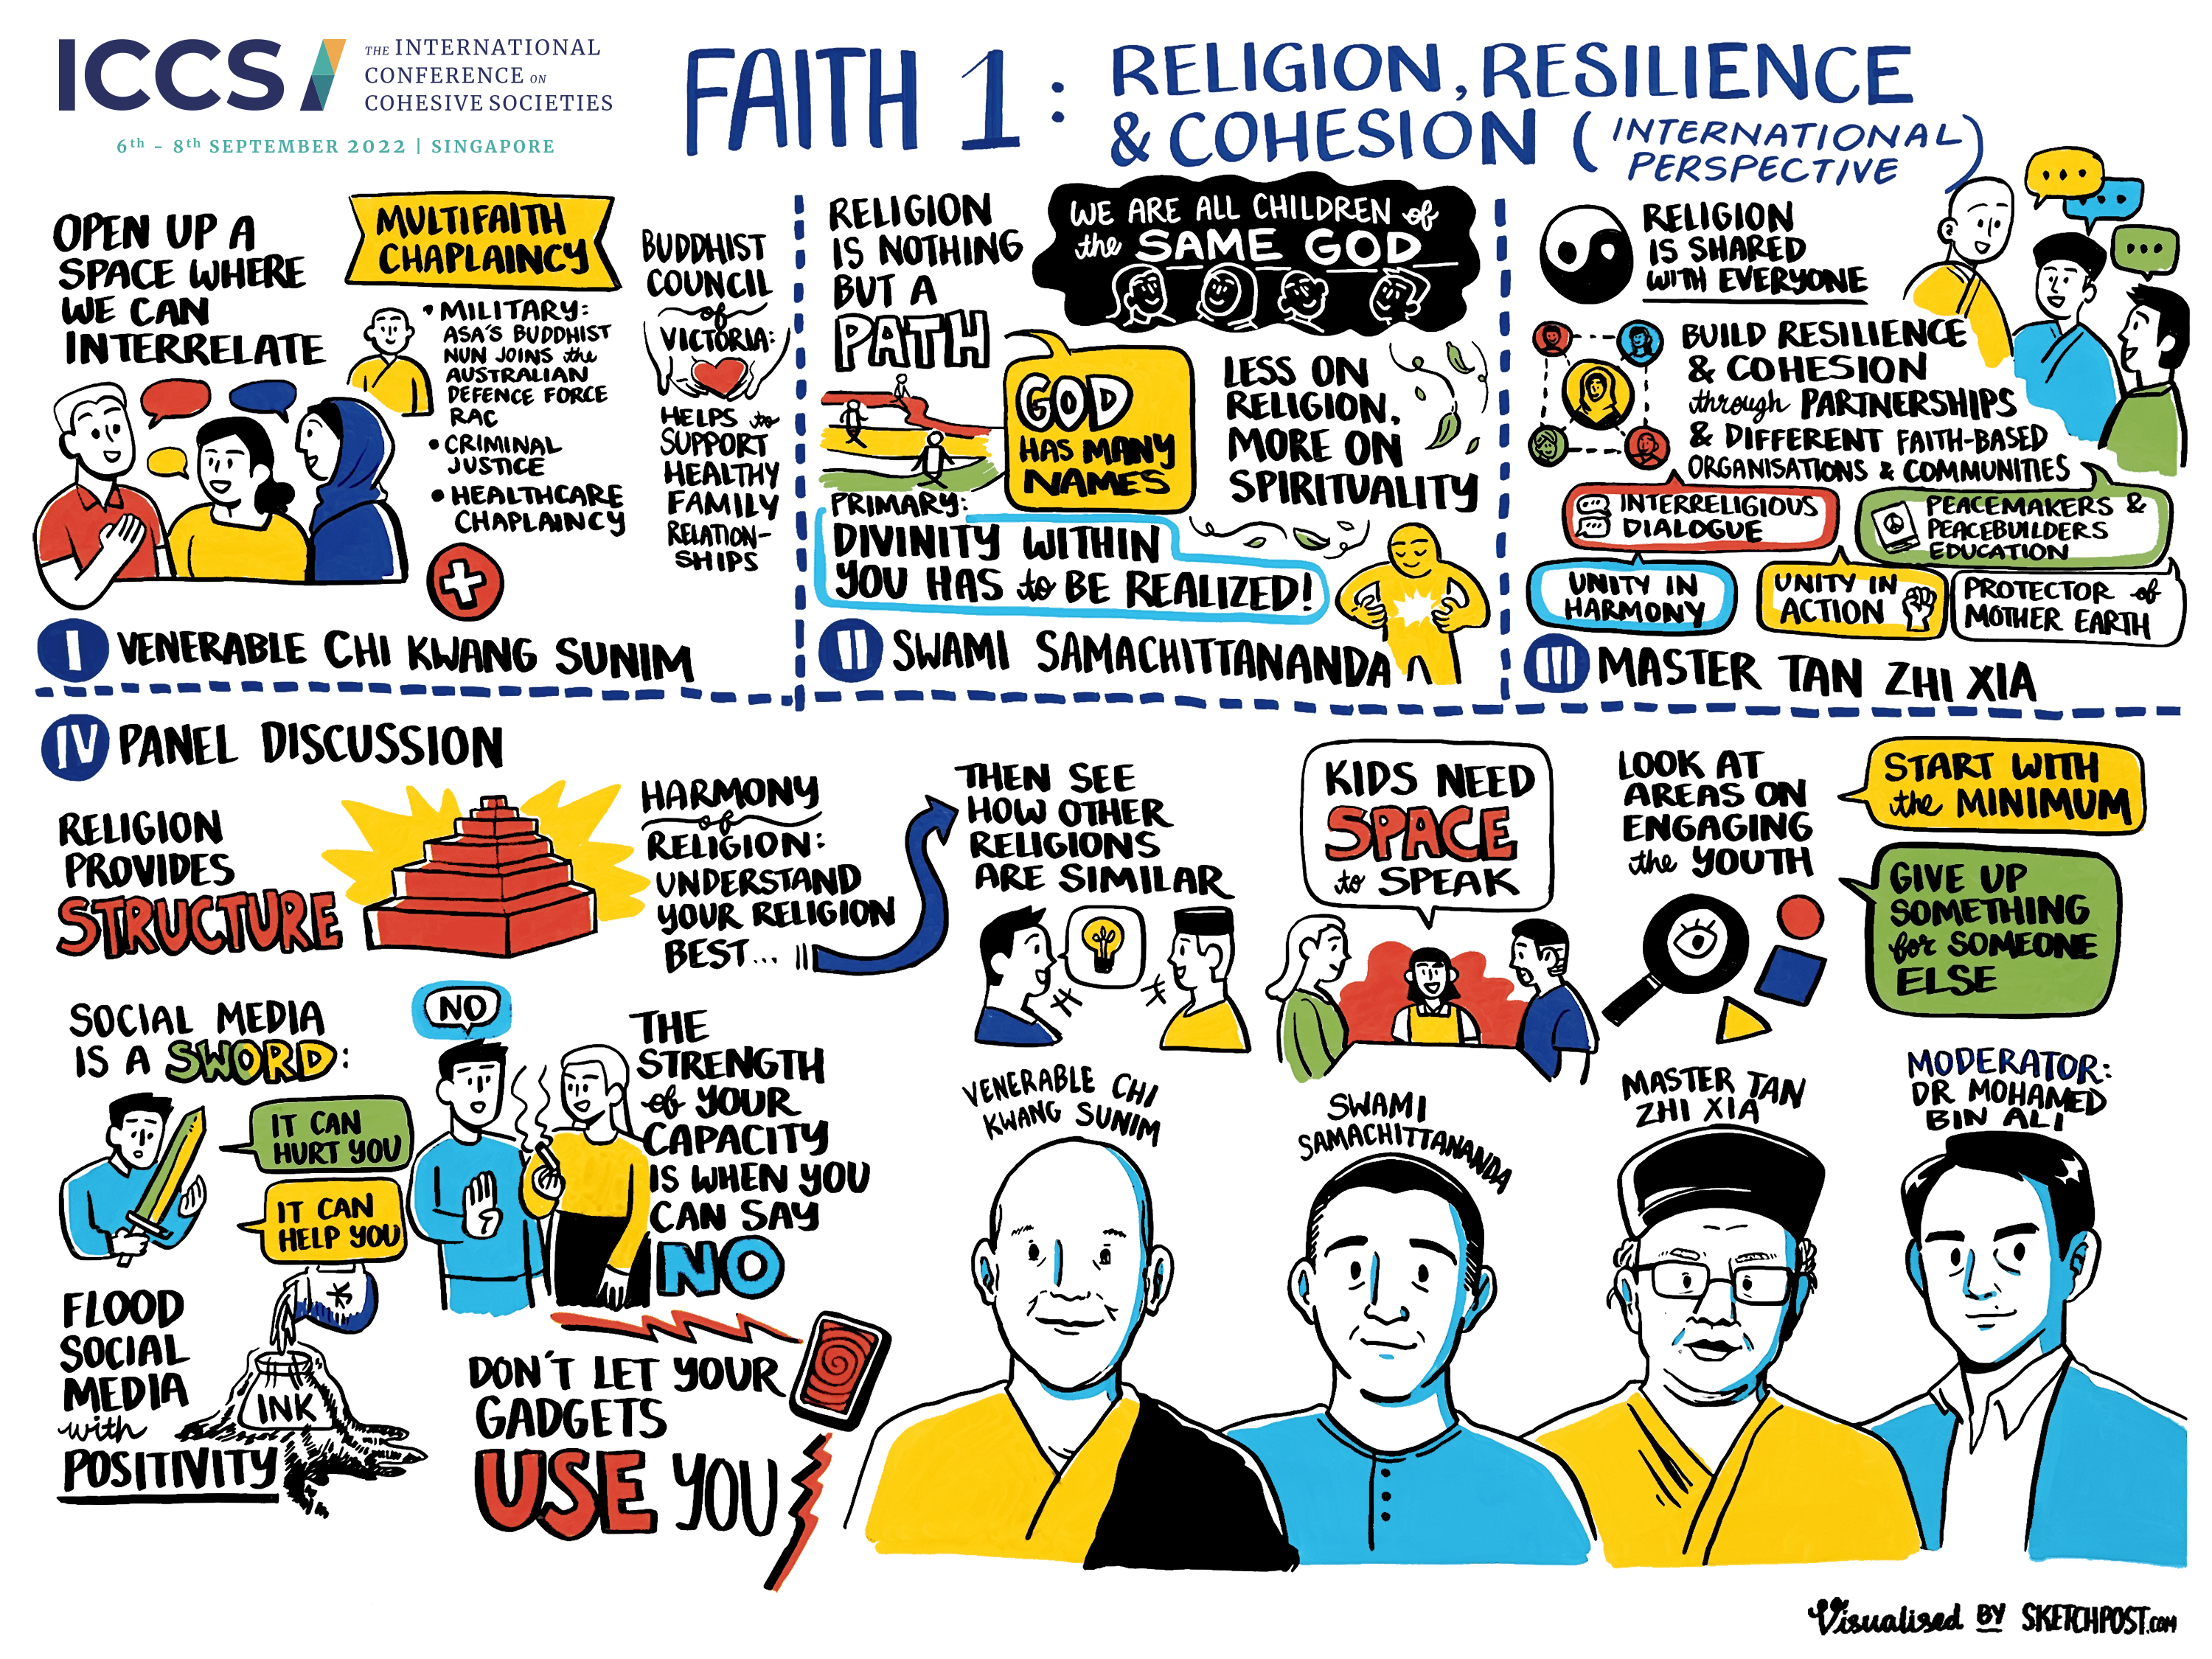 ICCS
THE INTERNATIONAL
CONFERENCE ON
COHESIVE SOCIETIES
6th - 8th SEPTEMBER 2022 | SINGAPORE
FAITH 1:
RELIGION, RESILIENCE
& COHESION (INTERNATIONAL
PERSPECTIVE)
OPEN UP A
SPACE WHERE
WE CAN
INTERRELATE
MULTIFAITH
CHAPLAINCY
• MILITARY:
ASA'S BUDDHIST
NUN JOINS the
AUSTRALIAN
DEFENCE FORCE
RAC
• CRIMINAL
JUSTICE
• HEALTHCARE
CHAPLAINCY
BUDDHIST
COUNCIL
of
VICTORIA:
HELPS to
SUPPORT
HEALTHY
FAMILY
RELATION-
SHIPS
I VENERABLE CHI KWANG SUNIM
RELIGION
IS NOTHING
BUT A
PATH
WE ARE ALL CHILDREN of
the SAME GOD
GOD
HAS MANY
NAMES
LESS ON
RELIGION,
MORE ON
SPIRITUALITY
PRIMARY:
DIVINITY WITHIN
YOU HAS to BE REALIZED!
II SWAMI SAMACHITTANANDA
RELIGION
IS SHARED
WITH EVERYONE
BUILD RESILIENCE
& COHESION
through PARTNERSHIPS
& DIFFERENT FAITH-BASED
ORGANISATIONS & COMMUNITIES
INTERRELIGIOUS
DIALOGUE
PEACEMAKERS &
PEACEBUILDERS
EDUCATION
UNITY IN
HARMONY
UNITY IN
ACTION
PROTECTOR of
MOTHER EARTH
III MASTER TAN ZHI XIA
IV PANEL DISCUSSION
RELIGION
PROVIDES
STRUCTURE
HARMONY
of
RELIGION:
UNDERSTAND
YOUR RELIGION
BEST...
THEN SEE
HOW OTHER
RELIGIONS
ARE SIMILAR
KIDS NEED
SPACE
to SPEAK
LOOK AT
AREAS ON
ENGAGING
the YOUTH
START WITH
the MINIMUM
GIVE UP
SOMETHING
for SOMEONE
ELSE
SOCIAL MEDIA
IS A SWORD:
IT CAN
HURT YOU
IT CAN
HELP YOU
NO
THE
STRENGTH
of YOUR
CAPACITY
IS WHEN YOU
CAN SAY
NO
FLOOD
SOCIAL
MEDIA
with
POSITIVITY
INK
DON'T LET YOUR
GADGETS
USE YOU
VENERABLE CHI
KWANG SUNIM
SWAMI
SAMACHITTANANDA
MASTER TAN
ZHI XIA
MODERATOR:
DR MOHAMED
BIN ALI
Visualised BY SKETCHPOST.COM